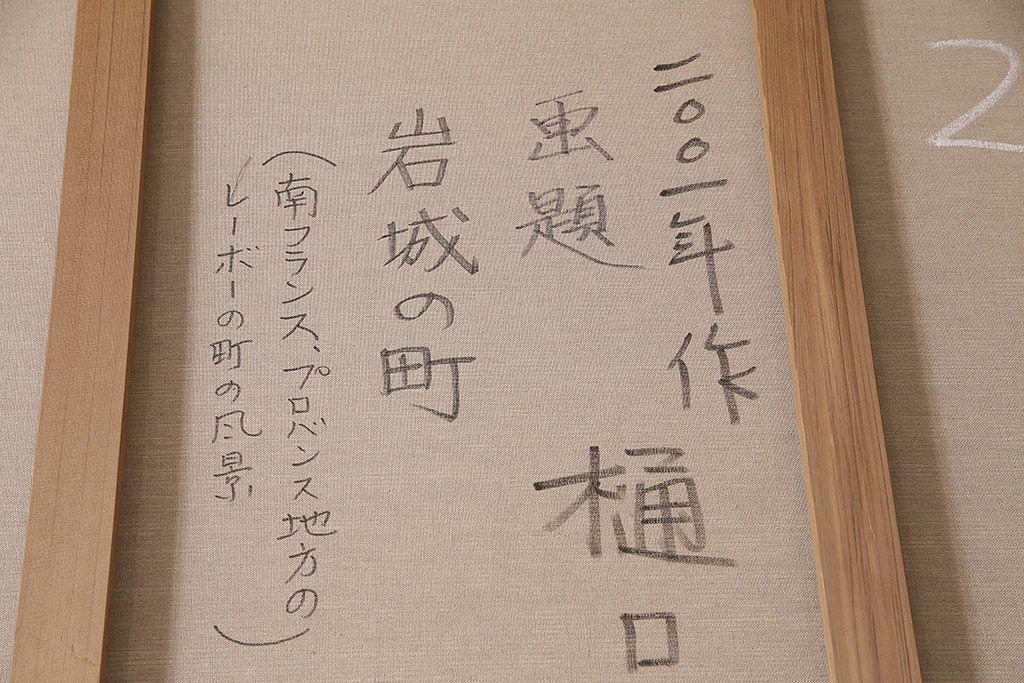 二〇〇一年作
樋口
画題
岩城の町
(南フランス、プロバンス地方の
レーボーの町の風景)
2